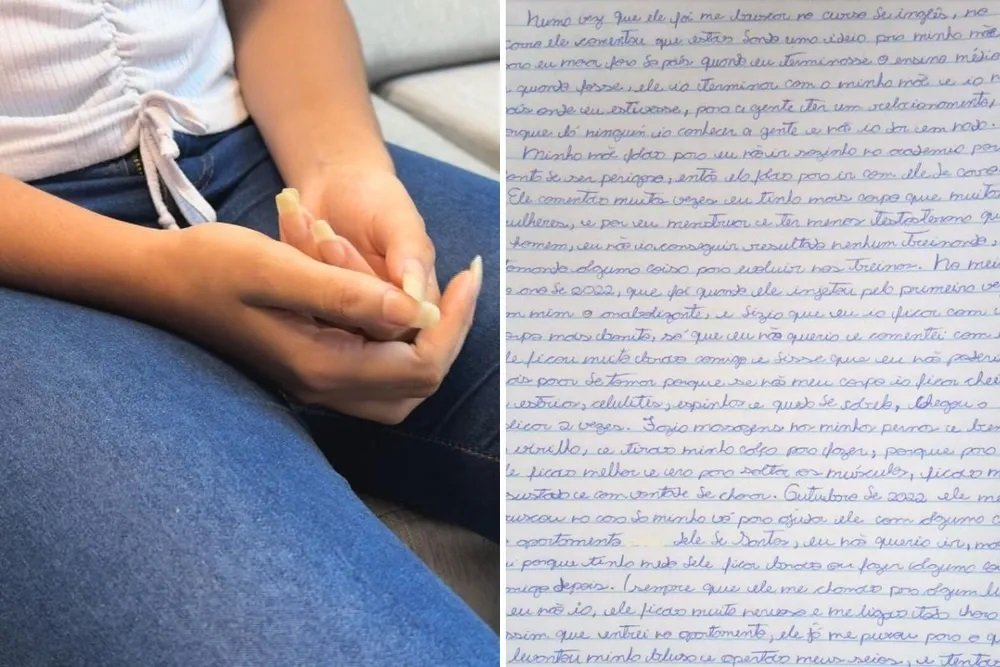 Numa vez que ele foi me buscar no curso de inglês, no
carro ele comentou que estava dando uma ideia para minha mãe
para eu morar fora do país quando eu terminasse o ensino médio
quando fosse, ele ia terminar com a minha mãe e ia
onde eu estivesse, para a gente ter um relacionamento,
porque lá ninguém ia conhecer a gente e não ia dar em nada.
Minha mãe falava para eu não ir sozinha na academia por
ser perigoso, então ela falava para ir com ele de carro
Ele comentava muitas vezes eu tinha mais corpo que muitas
mulheres, e por eu menstruar e ter menos testosterona que
homem, eu não ia conseguir resultado nenhum treinando,
tomando alguma coisa para evoluir nos treinos. No meio
ano de 2022, que foi quando ele injetou pela primeira vez
em mim o anabolizante, e dizia que eu ia ficar com
mais bonito, só que eu não queria e comentei com
ele ficou muito bravo comigo e disse que eu não poderia
parar de tomar porque se não meu corpo ia ficar cheio
estrias, celulites, espinhas e queda de cabelo, chegou a
aplicar 2 vezes. Fazia massagens na minha perna e
virilha, e tirava minha calça para fazer, porque para
ele ficava melhor e era para soltar os músculos, ficava
assustada e com vontade de chorar. Outubro de 2022 ele me
buscou na casa da minha vó para ajudar ele com alguma
apartamento dele de Santos, eu não queria ir, mas
porque tinha medo dele ficar bravo ou fazer alguma
comigo depois. (sempre que ele me chamava para algum
eu não ia, ele ficava muito nervoso e me ligava toda hora
assim que entrei no apartamento, ele já me puxou para o
levantou minha blusa e apertava meus seios, e